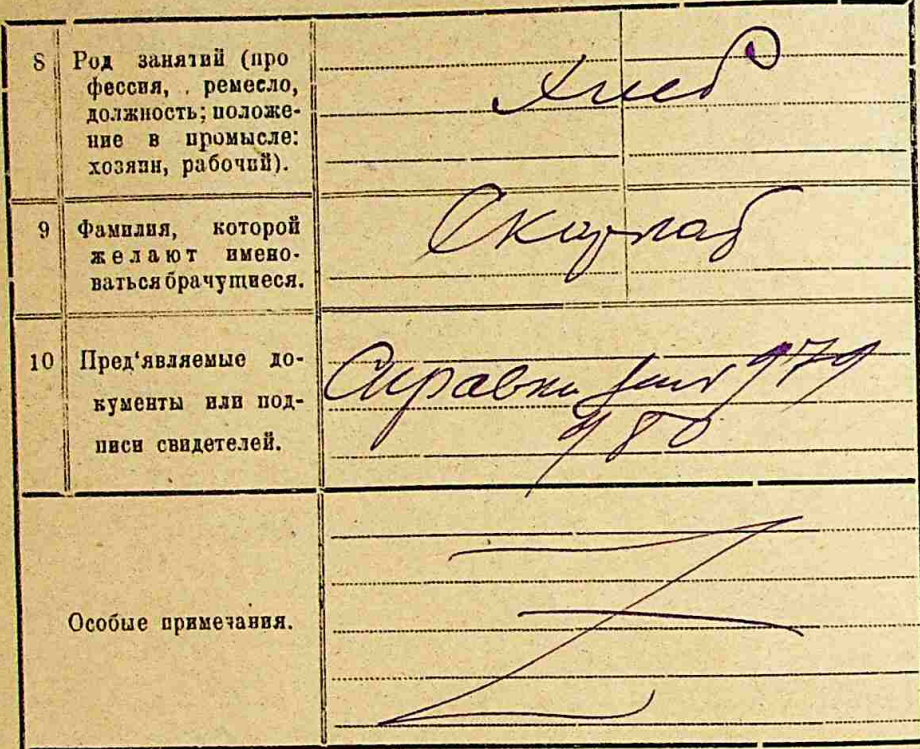 8 Род занятий (про
фессия, ремесло,
должность; положе-
ние в промысле:
хозяин, рабочий).
Хлеб
9 Фамилия, которой
желают имено-
ваться брачущиеся.
10 Пред'являемые до-
кументы или под-
писи свидетелей.
Справки 979
980
Особые примечания.